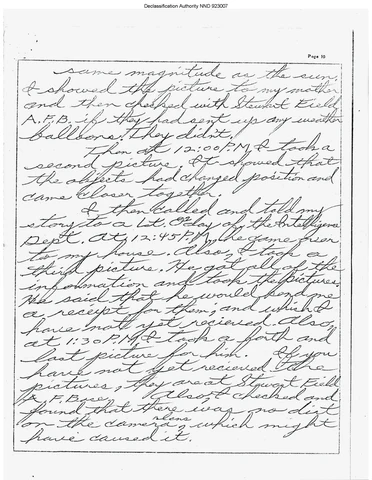 Declassification Authority NND 923007
Page 10
same magnitude as the sun.
I showed the picture to my mother
and then checked with Stewart Field
A.F.B. if they had sent up any weather
ballbons. They didn't.
Then at 12:00 P.M. I took a
second picture. It showed that
the objects had changed position and
came closer together.
I then called and told my
story to a Lt. Oday of the Intelligence
Dept. At 12:45 P.M. he came over
to my house. Also, I took a
third picture. He got all of the
information and took the pictures.
He said that he would send me
a receipt for them, and which I
have not yet recieved. Also,
at 1:30 P.M. I took a forth and
last picture for him. If you
have not yet recieved the
pictures, they are at Stewart Field
A.F. Base. Also, I checked and
found that there was no dirt
on the camera lens, which might
have caused it.